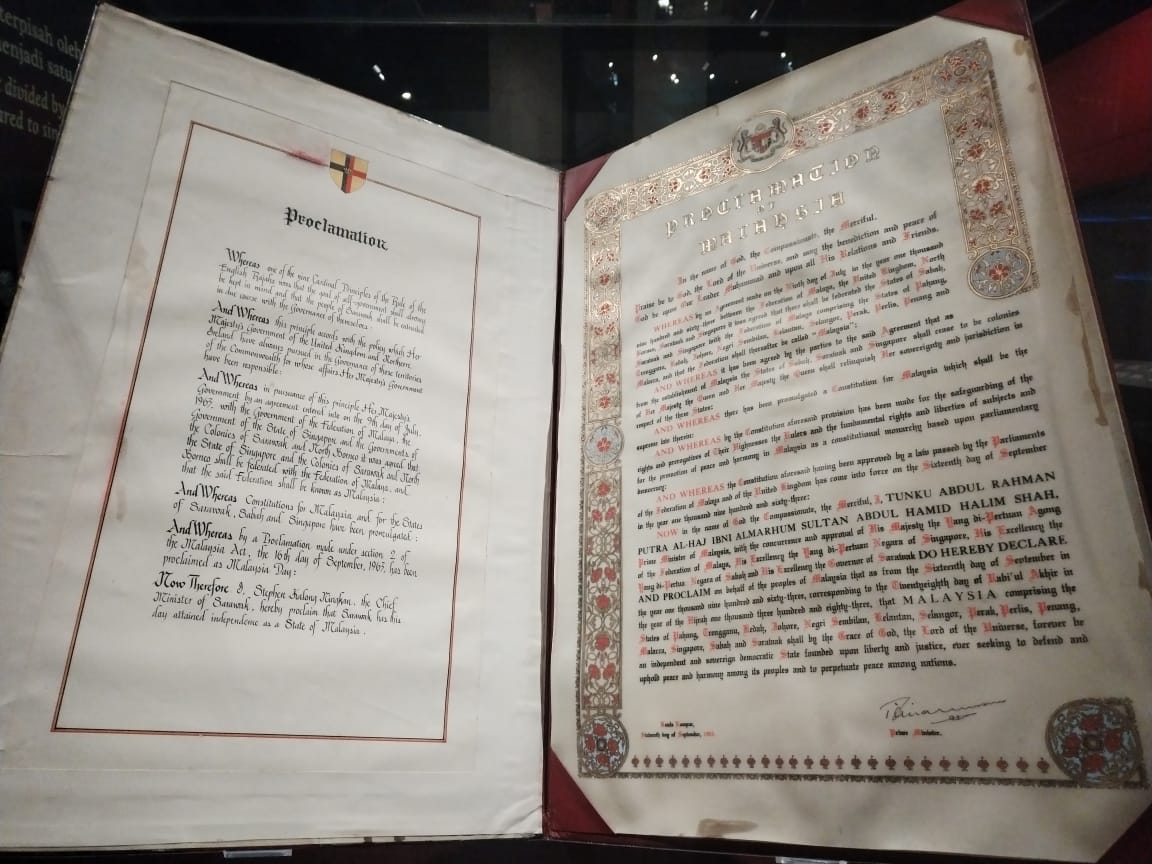 terpisah oleh
menjadi satu
divided by
Proclamation
Whereas one of the nine Cardinal Principles of the Rule of the
English Rajahs was that the goal of self-government shall always
be kept in mind and that the people of Sarawak shall be entrusted
in due course with the Governance of themselves:
And Whereas this principle accords with the policy which Her
Majesty's Government of the United Kingdom and Northern
Ireland have always pursued in the Governance of those territories
of the Commonwealth for whose affairs Her Majesty's Government
have been responsible:
And Whereas in pursuance of this principle Her Majesty's
Government by an agreement entered into on the 9th day of July,
1963, with the Government of the Federation of Malaya, the
Government of the State of Singapore and the Governments of
the Colonies of Sarawak and North Borneo it was agreed that
the State of Singapore and the Colonies of Sarawak and North
Borneo shall be federated with the Federation of Malaya, and
that the said Federation shall be known as Malaysia:
And Whereas Constitutions for Malaysia and for the States
of Sarawak, Sabah and Singapore have been promulgated:
And Whereas by a Proclamation made under section 2 of
the Malaysia Act, the 16th day of September, 1963, has been
proclaimed as Malaysia Day:
Now Therefore I, Stephen Kalong Ningkan, the Chief
Minister of Sarawak, hereby proclaim that Sarawak has this
day attained independence as a State of Malaysia.
PROCLAMATION
OF
MALAYSIA
In the name of God, the Compassionate, the Merciful.
Praise be to God, the Lord of the Universe, and may the benediction and peace of
God be upon Our Leader Muhammad and upon all His Relations and Friends.
WHEREAS by an Agreement made on the Ninth day of July in the year one thousand
nine hundred and sixty-three between the Federation of Malaya, the United Kingdom, North
Borneo, Sarawak and Singapore it was agreed that there shall be federated the States of Sabah,
Sarawak and Singapore with the Federation of Malaya comprising the States of Pahang,
Trengganu, Kedah, Johore, Negri Sembilan, Kelantan, Selangor, Perak, Perlis, Penang and
Malacca, and that the Federation shall thereafter be called "Malaysia":
AND WHEREAS it has been agreed by the parties to the said Agreement that as
from the establishment of Malaysia the States of Sabah, Sarawak and Singapore shall cease to be colonies
of Her Majesty the Queen and Her Majesty the Queen shall relinquish Her sovereignty and jurisdiction in
respect of the three States:
AND WHEREAS there has been promulgated a Constitution for Malaysia which shall be the
supreme law therein:
AND WHEREAS by the Constitution aforesaid provision has been made for the safeguarding of the
rights and prerogatives of Their Highnesses the Rulers and the fundamental rights and liberties of subjects and
for the promotion of peace and harmony in Malaysia as a constitutional monarchy based upon parliamentary
democracy:
AND WHEREAS the Constitution aforesaid having been approved by a law passed by the Parliaments
of the Federation of Malaya and of the United Kingdom has come into force on the Sixteenth day of September
in the year one thousand nine hundred and sixty-three:
NOW in the name of God the Compassionate, the Merciful, I, TUNKU ABDUL RAHMAN
PUTRA AL-HAJ IBNI ALMARHUM SULTAN ABDUL HAMID HALIM SHAH,
Prime Minister of Malaysia, with the concurrence and approval of His Majesty the Yang di-Pertuan Agong
of the Federation of Malaya, His Excellency the Yang di-Pertuan Negara of Singapore, His Excellency the
Yang di-Pertua Negara of Sabah and His Excellency the Governor of Sarawak DO HEREBY DECLARE
AND PROCLAIM on behalf of the peoples of Malaysia that as from the Sixteenth day of September in
the year one thousand nine hundred and sixty-three, corresponding to the Twentyeighth day of Rabi'ul Akhir in
the year of the Hijrah one thousand three hundred and eighty-three, that MALAYSIA comprising the
States of Pahang, Trengganu, Kedah, Johore, Negri Sembilan, Kelantan, Selangor, Perak, Perlis, Penang,
Malacca, Singapore, Sabah and Sarawak shall by the Grace of God, the Lord of the Universe, forever be
an independent and sovereign democratic State founded upon liberty and justice, ever seeking to defend and
uphold peace and harmony among its peoples and to perpetuate peace among nations.
Kuala Lumpur,
Sixteenth day of September, 1963.
Prime Minister.